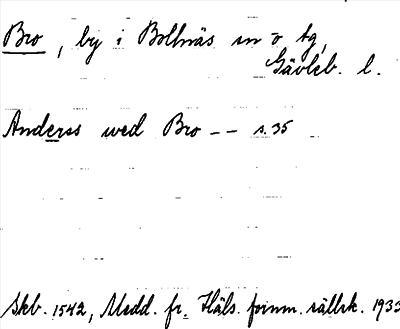 Bro, by i Bollnäs sn o tg,
Gävleb. l.
Anderss wed Bro -- s. 35
Skb. 1542, Medd. fr. Häls. fornm. sällsk. 1933